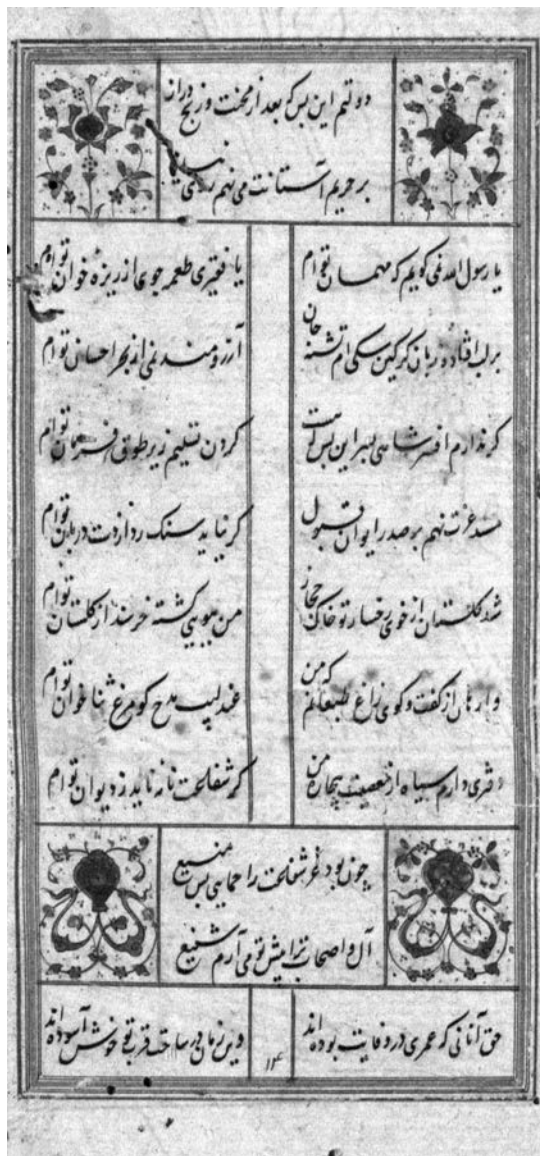 دولتم این بس که بعد از محنت و رنج دراز
بر حریم آستانت می نهم روی نیاز
یا رسول الله نمی گویم که مهمان توام
یا فقیری طعمه جوی از ریزه خوان توام
بر لب افتاده زبان گرگین سگی ام تشنه جان
آرزومند نمی از بحر احسان توام
گر ندارم افسر شاهی بسر این بس که هست
گردن تسلیم زیر طوق فرمان توام
مسند عزت نهم بر صدر ایوان قبول
گر نیاید سنگ رد از دست دربان توام
شد گلستان از خوی رخسار تو خاک حجاز
من ببویی گشته خرسند از گلستان توام
وارهان از گفت و گوی زاغ طبعانم که من
عندلیب مدح گو مرغ ثنا خوان توام
دفتری دارم سیاه از معصیت بیچاره من
گر شفاعت نامه ناید ز دیوان توام
چون بود عز شفاعت را حمای بس منیع
آل و اصحاب ترا پیش تو می آرم شفیع
حق آنانی که عمری در وفایت بوده اند
وین زمان در ساحت قرب تو خوش آسوده اند
۱۲۴